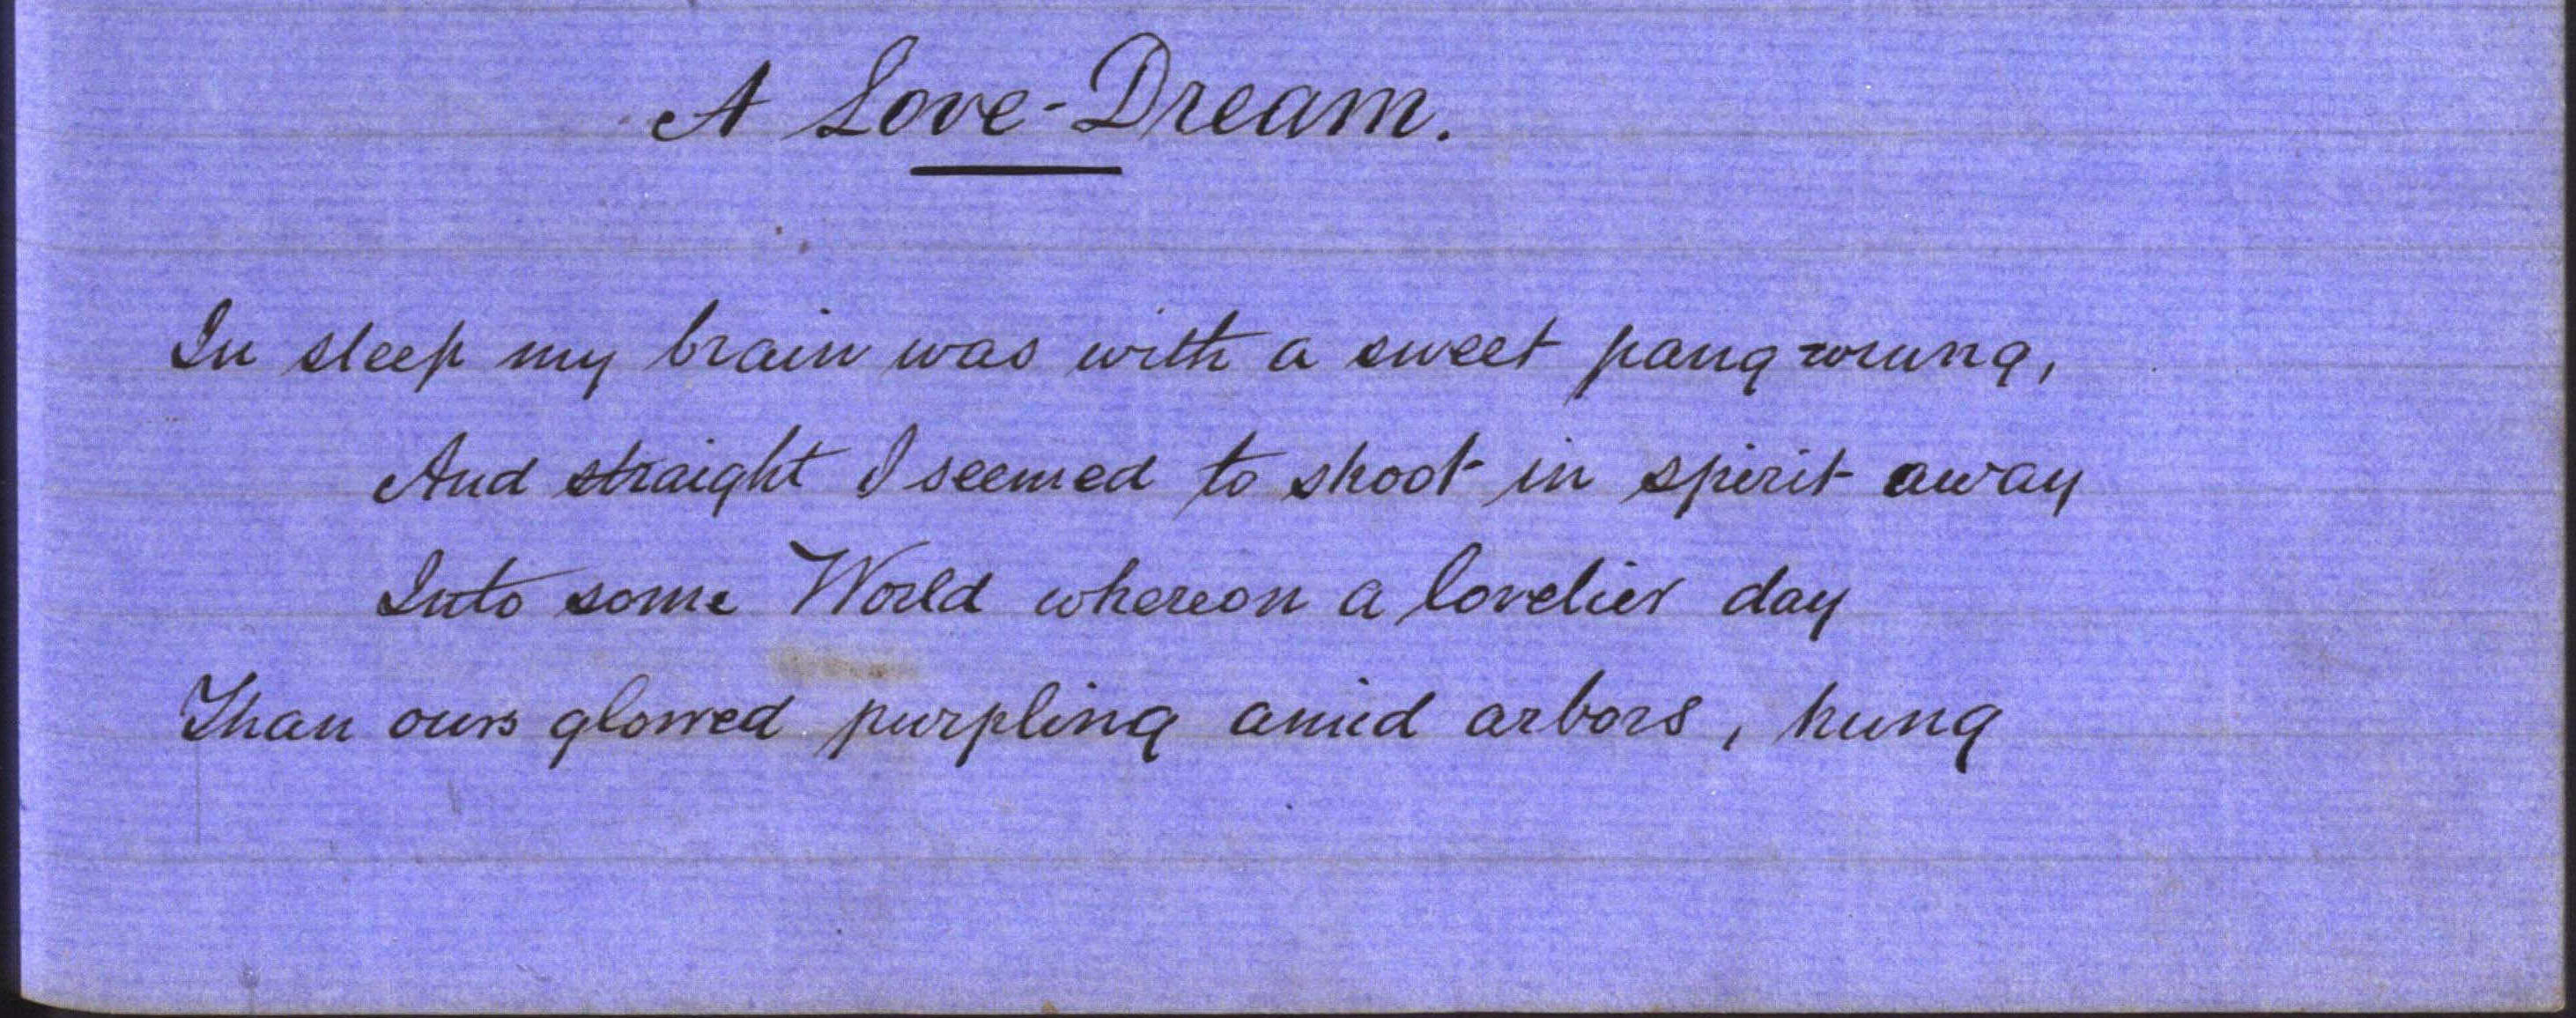 A Love-Dream.
In sleep my brain was with a sweet pang wrung,
And straight I seemed to shoot in spirit away
Into some World whereon a lovelier day
Than ours glowed purpling amid arbors, hung